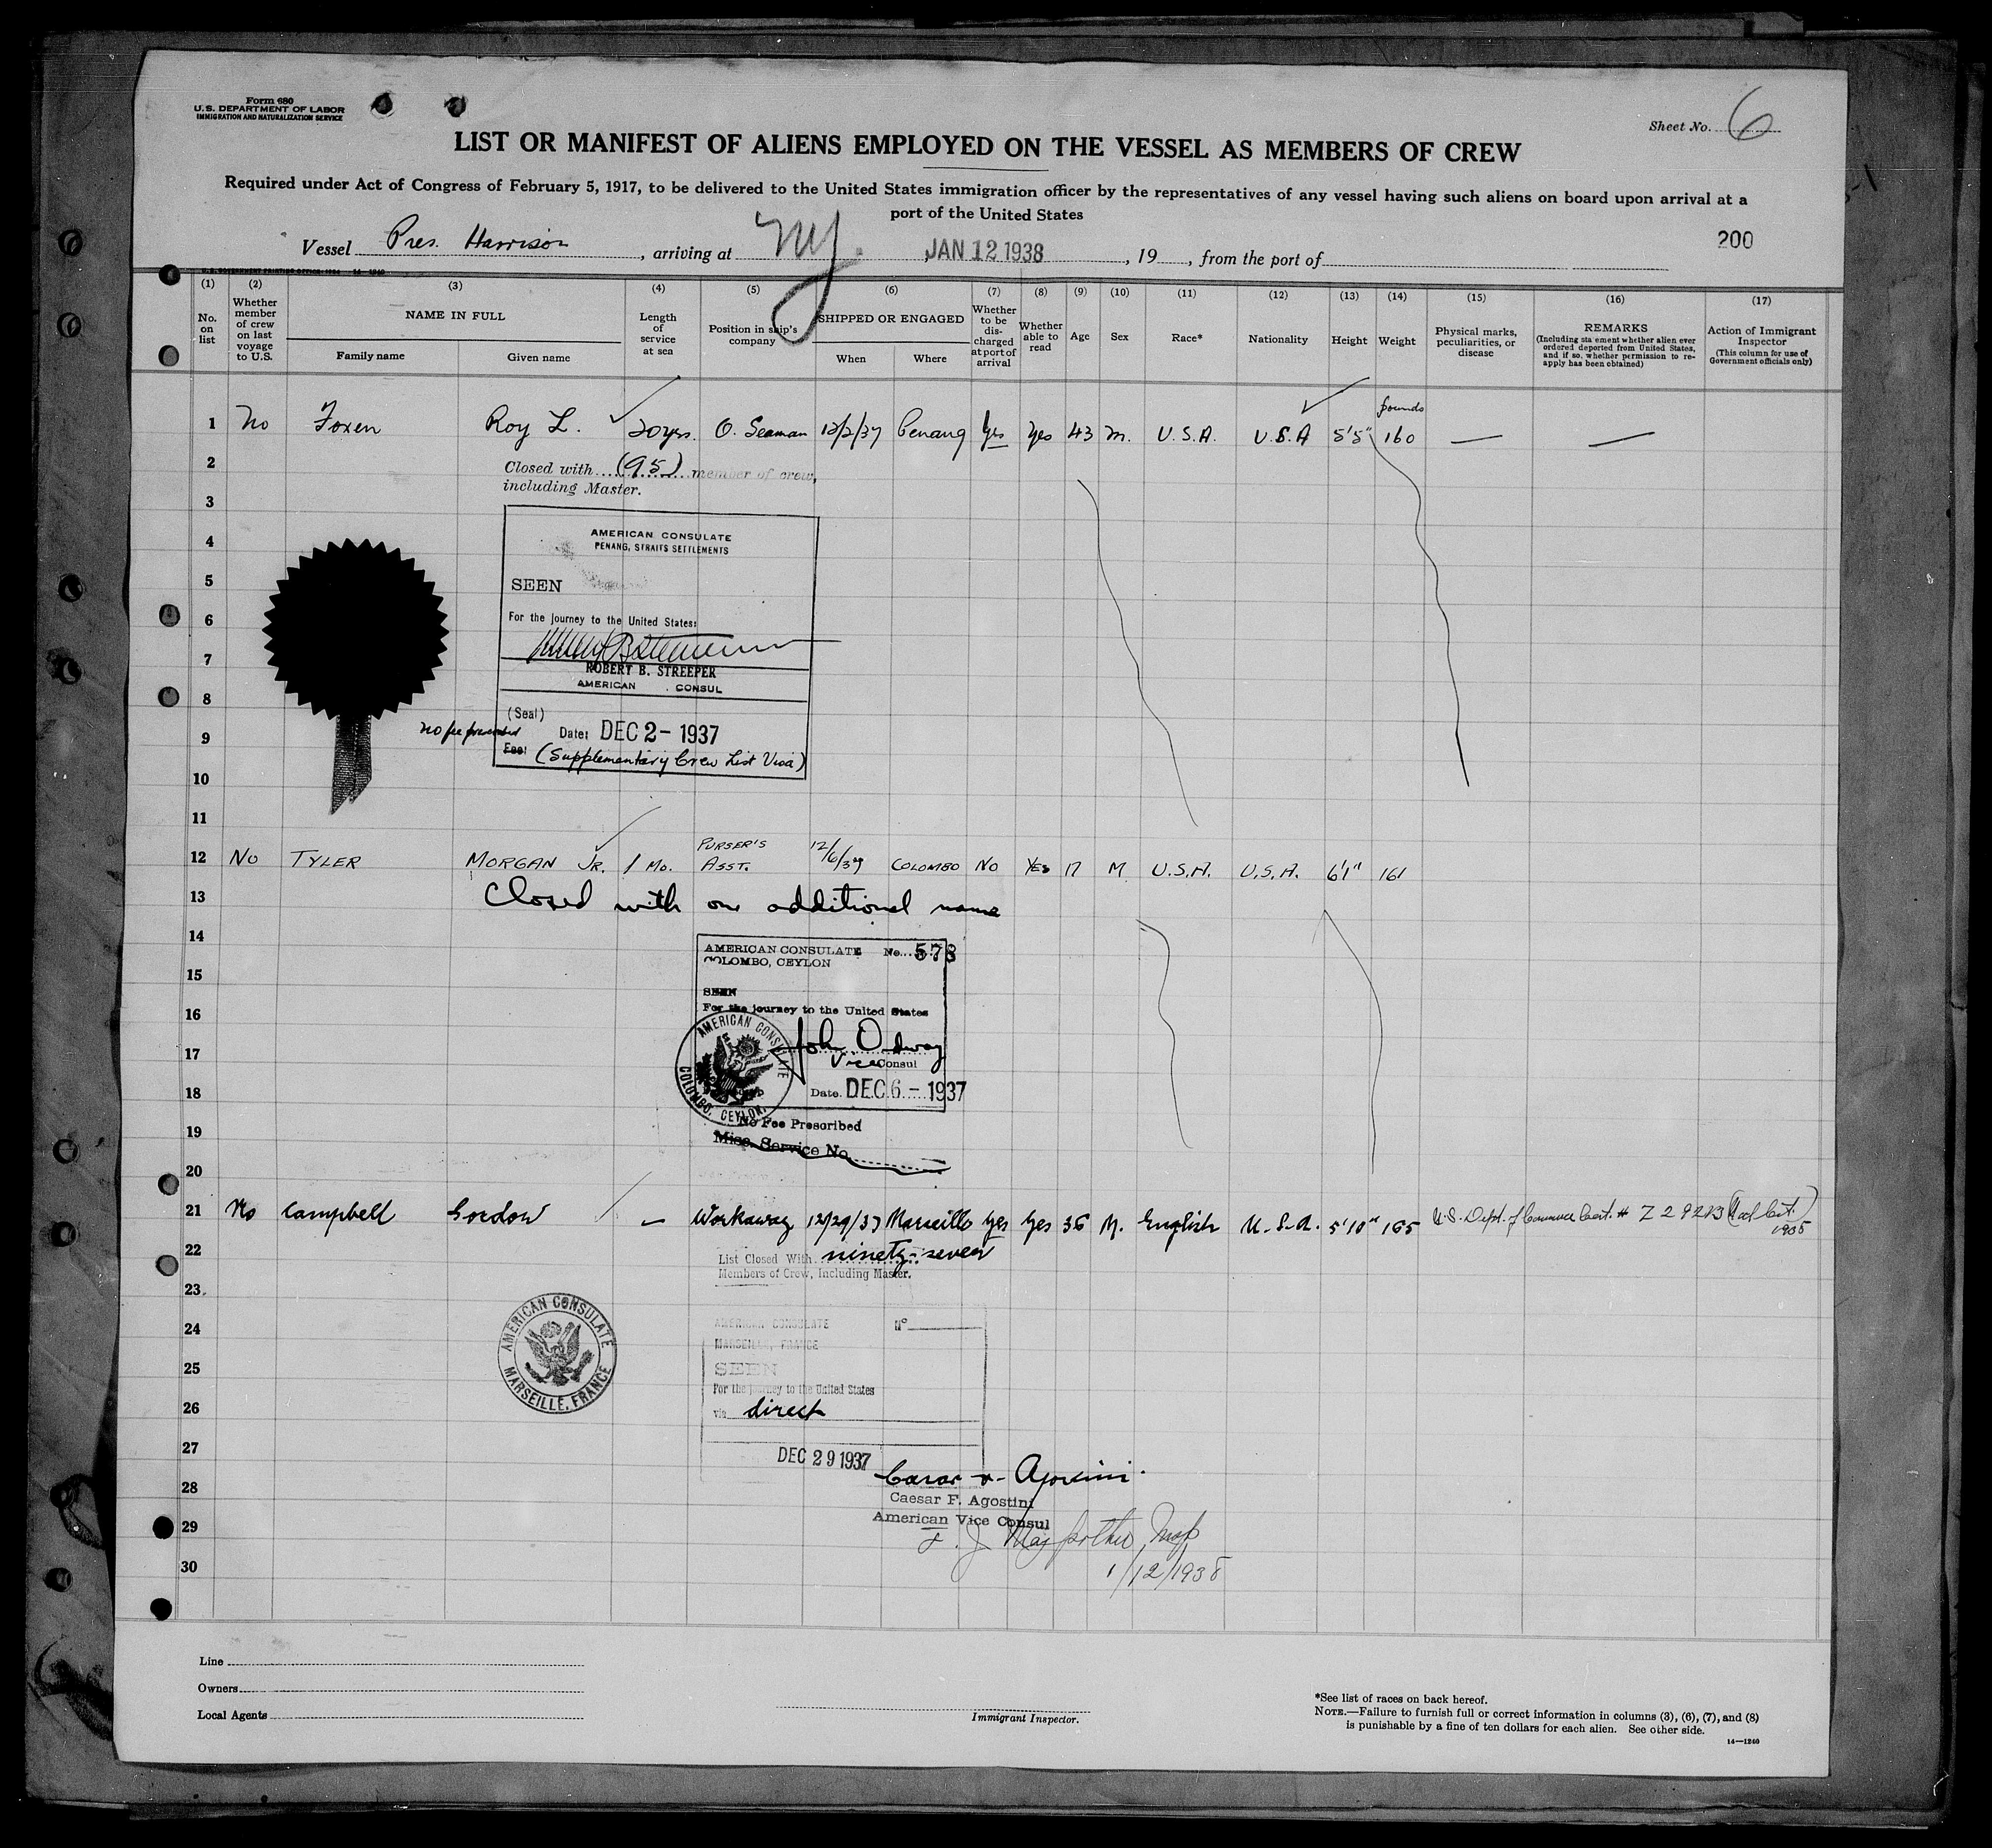 Form 680
U.S. DEPARTMENT OF LABOR
IMMIGRATION AND NATURALIZATION SERVICE
Sheet No. 6
LIST OR MANIFEST OF ALIENS EMPLOYED ON THE VESSEL AS MEMBERS OF CREW
Required under Act of Congress of February 5, 1917, to be delivered to the United States immigration officer by the representatives of any vessel having such aliens on board upon arrival at a
port of the United States
200
Vessel Pres. Harrison, arriving at NY. JAN 12 1938, 19, from the port of
U.S. GOVERNMENT PRINTING OFFICE: 1934 14-1240
(1) No. on list
(2) Whether member of crew on last voyage to U.S.
(3) NAME IN FULL
Family name
Given name
(4) Length of service at sea
(5) Position in ship's company
(6) SHIPPED OR ENGAGED
When
Where
(7) Whether to be discharged at port of arrival
(8) Whether able to read
(9) Age
(10) Sex
(11) Race*
(12) Nationality
(13) Height
(14) Weight
(15) Physical marks, peculiarities, or disease
(16) REMARKS (Including sta ement whether alien ever ordered deported from United States, and if so, whether permission to re-apply has been obtained)
(17) Action of Immigrant Inspector (This column for use of Government officials only)
pounds
1 No Foxen Roy L. 20yrs. O. Seaman 12/2/37 Penang Yes Yes 43 M. U.S.A. U.S.A 5'5" 160 — —
2
Closed with (95) member of crew,
including Master.
3
AMERICAN CONSULATE
4
PENANG, STRAITS SETTLEMENTS
5
SEEN
6
For the journey to the United States:
7
ROBERT B. STREEPER
AMERICAN CONSUL
8
(Seal)
no fee prescribed
9
Date: DEC 2 - 1937
Fee: (Supplementary Crew List Visa)
10
11
12 No TYLER MORGAN JR. 1 Mo. PURSER'S ASST. 12/6/37 COLOMBO NO YES 17 M U.S.A. U.S.A. 6'1" 161
13
Closed with one additional name
14
AMERICAN CONSULATE No. 578
COLOMBO, CEYLON
15
SEEN
16
For the journey to the United States
AMERICAN CONSULATE
COLOMBO, CEYLON.
17
John Ordway
Vice Consul
18
Date. DEC 6 - 1937
19
No Fee Prescribed
Misc. Service No.
20
21 No Campbell Gordon — Workaway 12/29/37 Marseille Yes Yes 36 M. English U.S.A. 5'10" 165 U.S. Dept. of Commerce Cert. # Z 29213 1935
22
List Closed With ninety-seven
Members of Crew, Including Master.
23
AMERICAN CONSULATE
MARSEILLE, FRANCE
24
AMERICAN CONSULATE Nº
MARSEILLE, FRANCE
25
SEEN
For the journey to the United States
26
via direct
27
DEC 29 1937
28
Caesar F. Agostini
American Vice Consul
29
Insp
1/12/1938
30
Line
Owners
Local Agents
Immigrant Inspector.
*See list of races on back hereof.
NOTE.—Failure to furnish full or correct information in columns (3), (6), (7), and (8)
is punishable by a fine of ten dollars for each alien. See other side.
14—1240